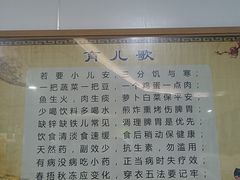 育儿歌
若要小儿安，三分饥与寒；
一把蔬菜一把豆，一个鸡蛋一点肉；
鱼生火，肉生痰，萝卜白菜保平安；
少喝饮料多喝水，煎炸熏烤伤脾胃；
缺锌缺铁儿常见，调理脾胃是优先；
饮食清淡食速缓，食后稍动保健康；
天然药，副效少，抗生素，勿滥用；
有病没病吃小药，正当病时失疗效；
春捂秋冻应变化，穿衣五法要记牢